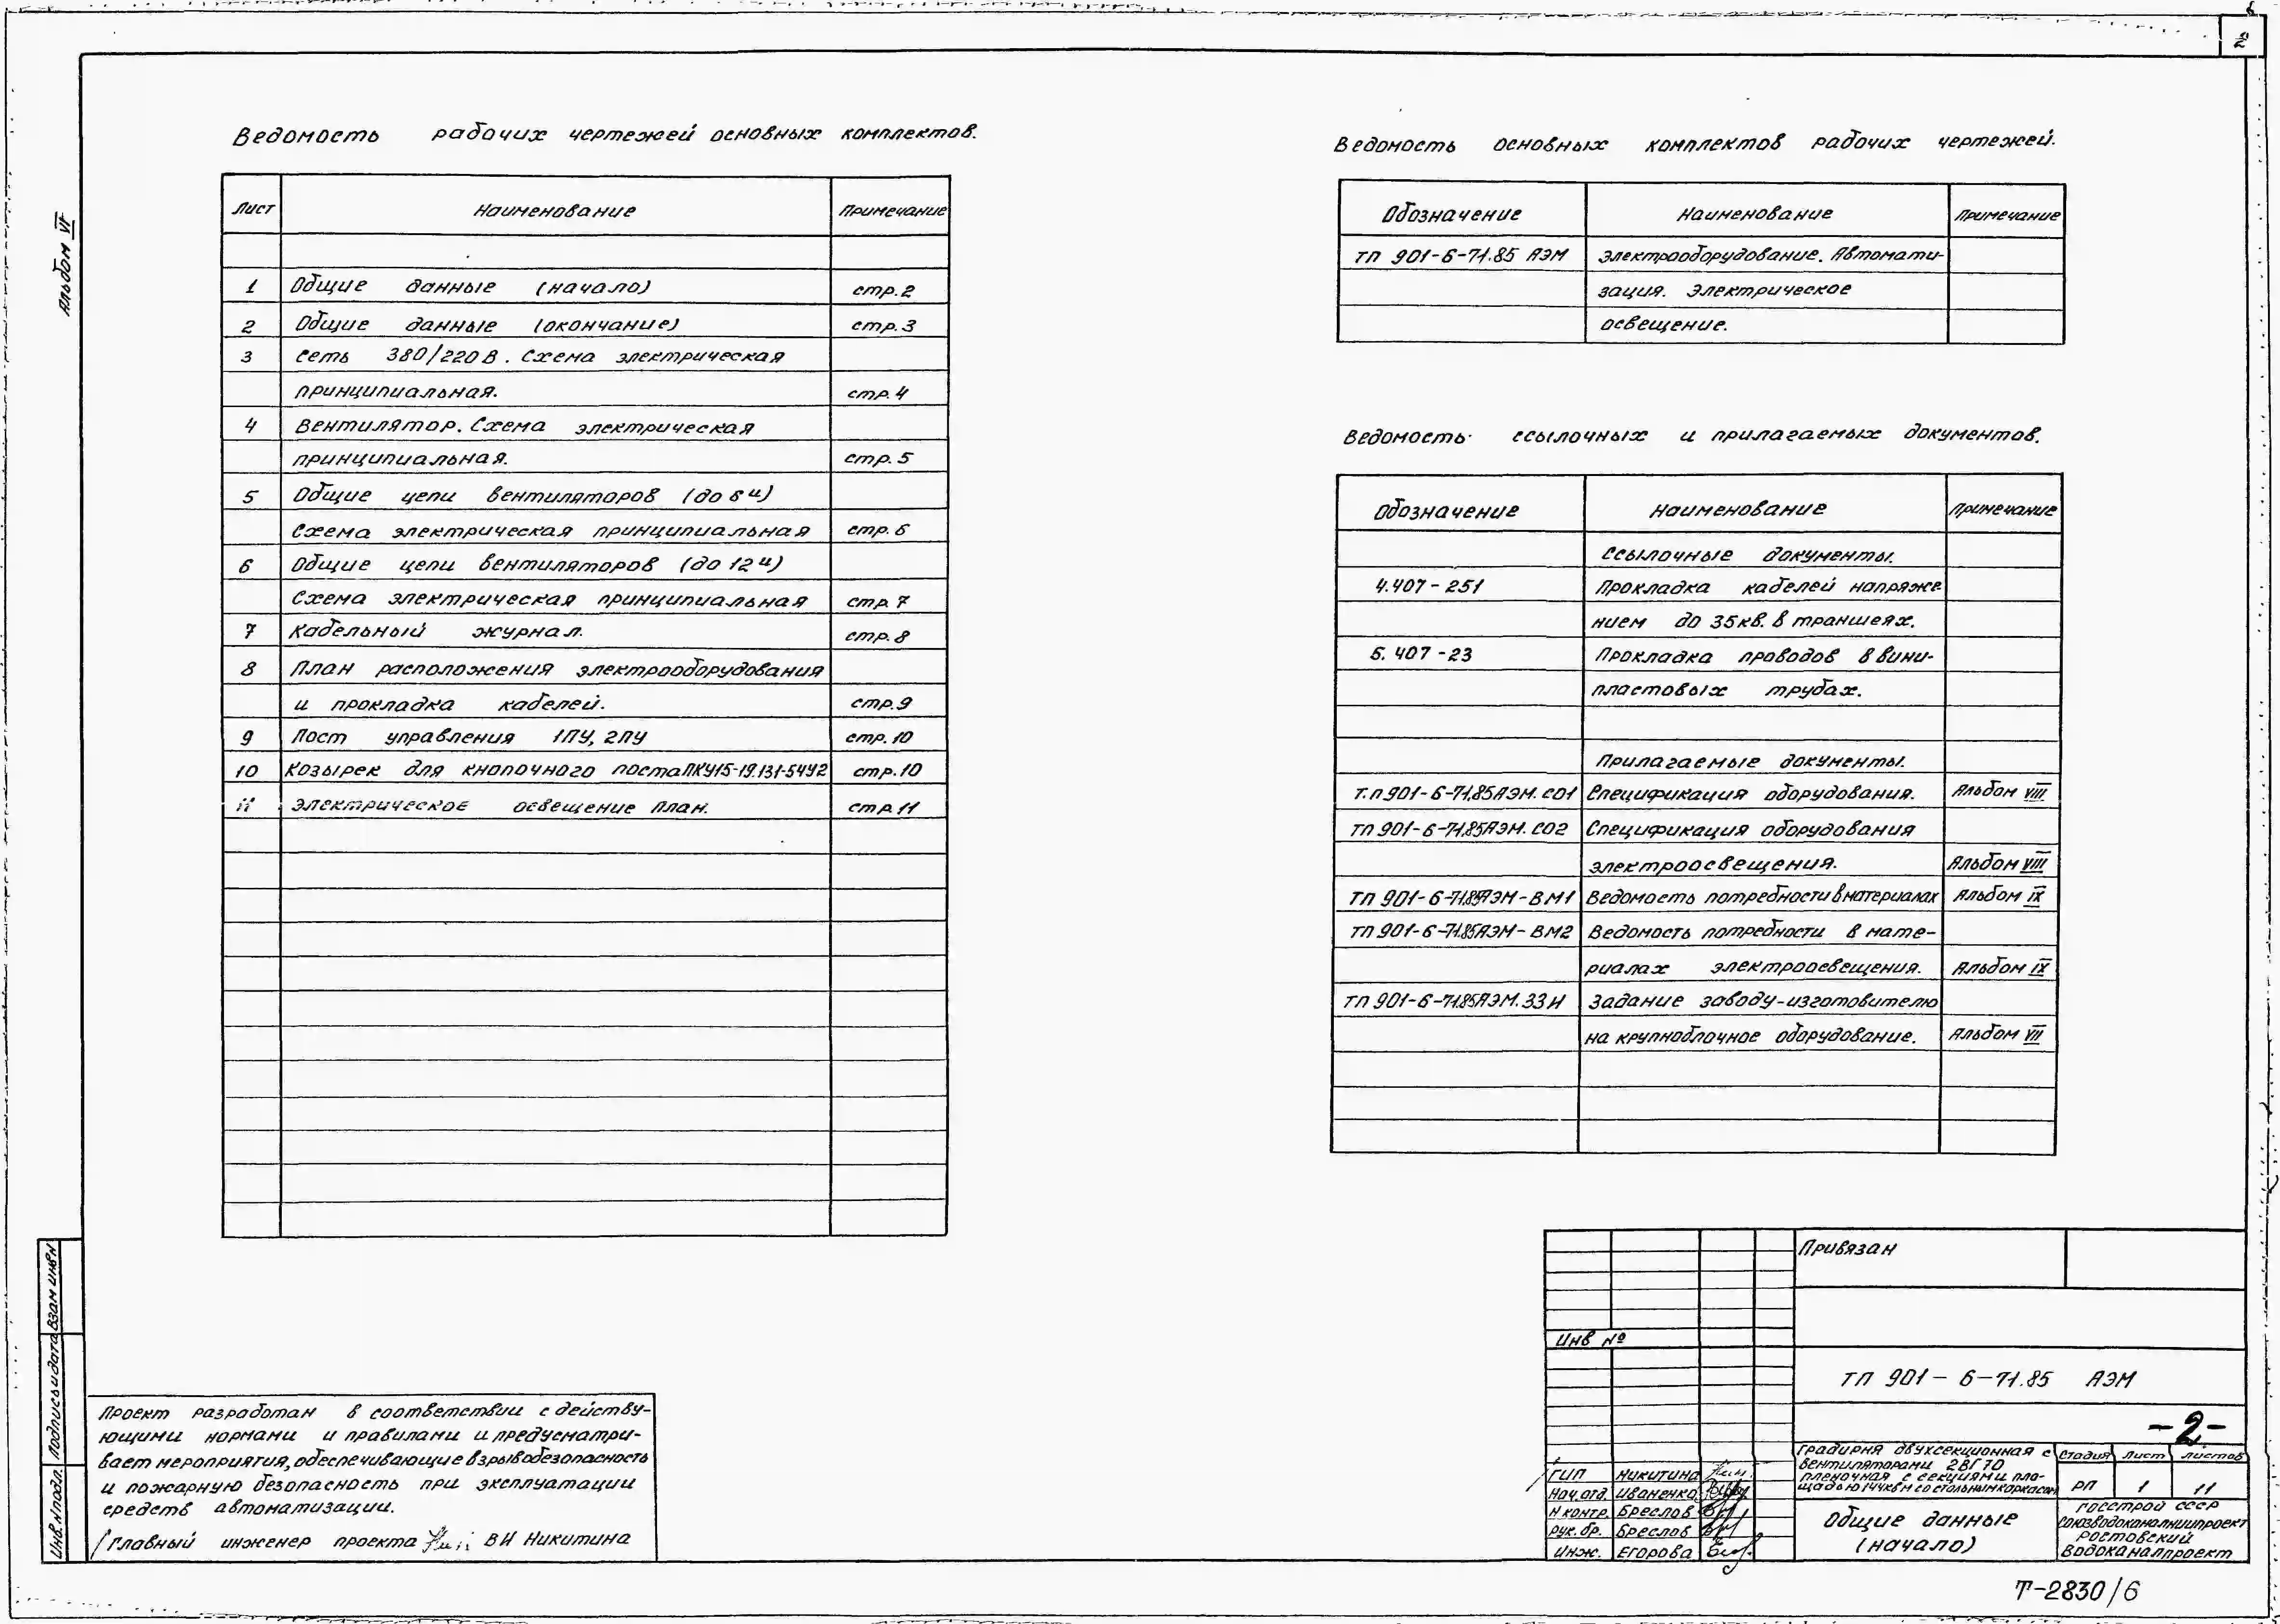 2
Альбом VI
Ведомость рабочих чертежей основных комплектов.
Лист Наименование Примечание
1 Общие данные (начало) стр.2
2 Общие данные (окончание) стр.3
3 Сеть 380/220В. Схема электрическая
принципиальная. стр.4
4 Вентилятор. Схема электрическая
принципиальная. стр.5
5 Общие цепи вентиляторов (до 6и)
Схема электрическая принципиальная стр.6
6 Общие цепи вентиляторов (до 12и)
Схема электрическая принципиальная стр.7
7 Кабельный журнал. стр.8
8 План расположения электрооборудования
и прокладка кабелей. стр.9
9 Пост управления 1ПУ, 2ПУ стр.10
10 Козырек для кнопочного поста ПКУ15-19.131-54У2 стр.10
11 Электрическое освещение план. стр.11
Ведомость основных комплектов рабочих чертежей.
Обозначение Наименование Примечание
ТП 901-6-71.85 АЭМ Электрооборудование. Автомати-
зация. Электрическое
освещение.
Ведомость ссылочных и прилагаемых документов.
Обозначение Наименование Примечание
Ссылочные документы.
4.407-251 Прокладка кабелей напряже
нием до 35кв. в траншеях.
5.407-23 Прокладка проводов в вини-
пластовых трубах.
Прилагаемые документы.
Т.П901-6-71.85АЭМ.СО1 Спецификация оборудования. Альбом VIII
ТП 901-6-71.85АЭМ.СО2 Спецификация оборудования
электроосвещения. Альбом VIII
ТП 901-6-71.85АЭМ-ВМ1 Ведомость потребности в материалах Альбом IX
ТП 901-6-71.85АЭМ-ВМ2 Ведомость потребности в мате-
риалах электроосвещения. Альбом IX
ТП 901-6-71.85АЭМ.ЗЗИ Задание заводу-изготовителю
на крупноблочное оборудование. Альбом VII
Проект разработан в соответствии с действу-
ющими нормами и правилами и предусматри-
вает мероприятия, обеспечивающие взрывобезопасность
и пожарную безопасность при эксплуатации
средств автоматизации.
Главный инженер проекта ВИ Никитина
Взам инв N
Подпись и дата
Инв. N подл.
Привязан
Инв №
ТП 901-6-71.85 АЭМ
-2-
ГИП Никитина
Нач. отд. Иваненко
Н контр. Бреслов
Рук. бр. Бреслов
Инж. Егорова
Градирня двухсекционная с
вентиляторами 2ВГ70
пленочная с секциями пло-
щадью 144кв м со стальным каркасом
Стадия Лист Листов
РП 1 11
Общие данные
(начало)
Госстрой СССР
Союзводоканалниипроект
Ростовский
Водоканалпроект
Т-2830/6